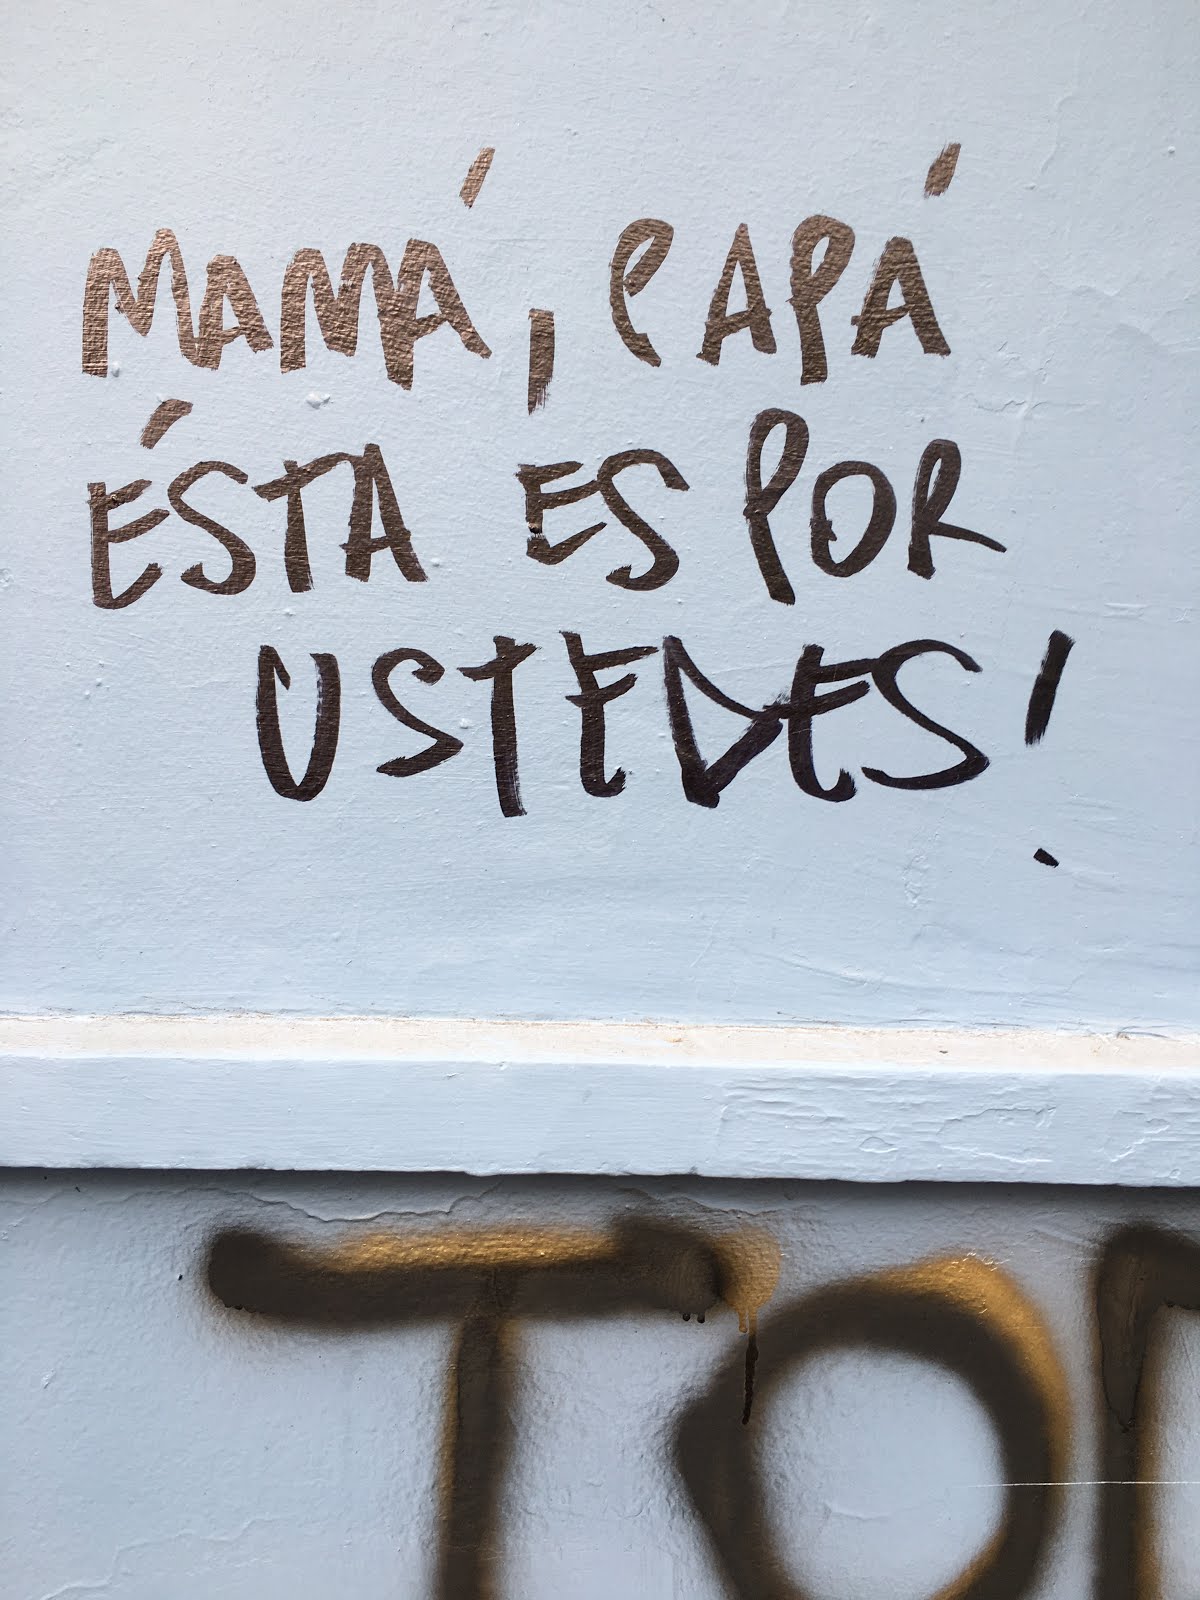 MAMÁ, PAPÁ
ÉSTA ES POR
USTEDES!